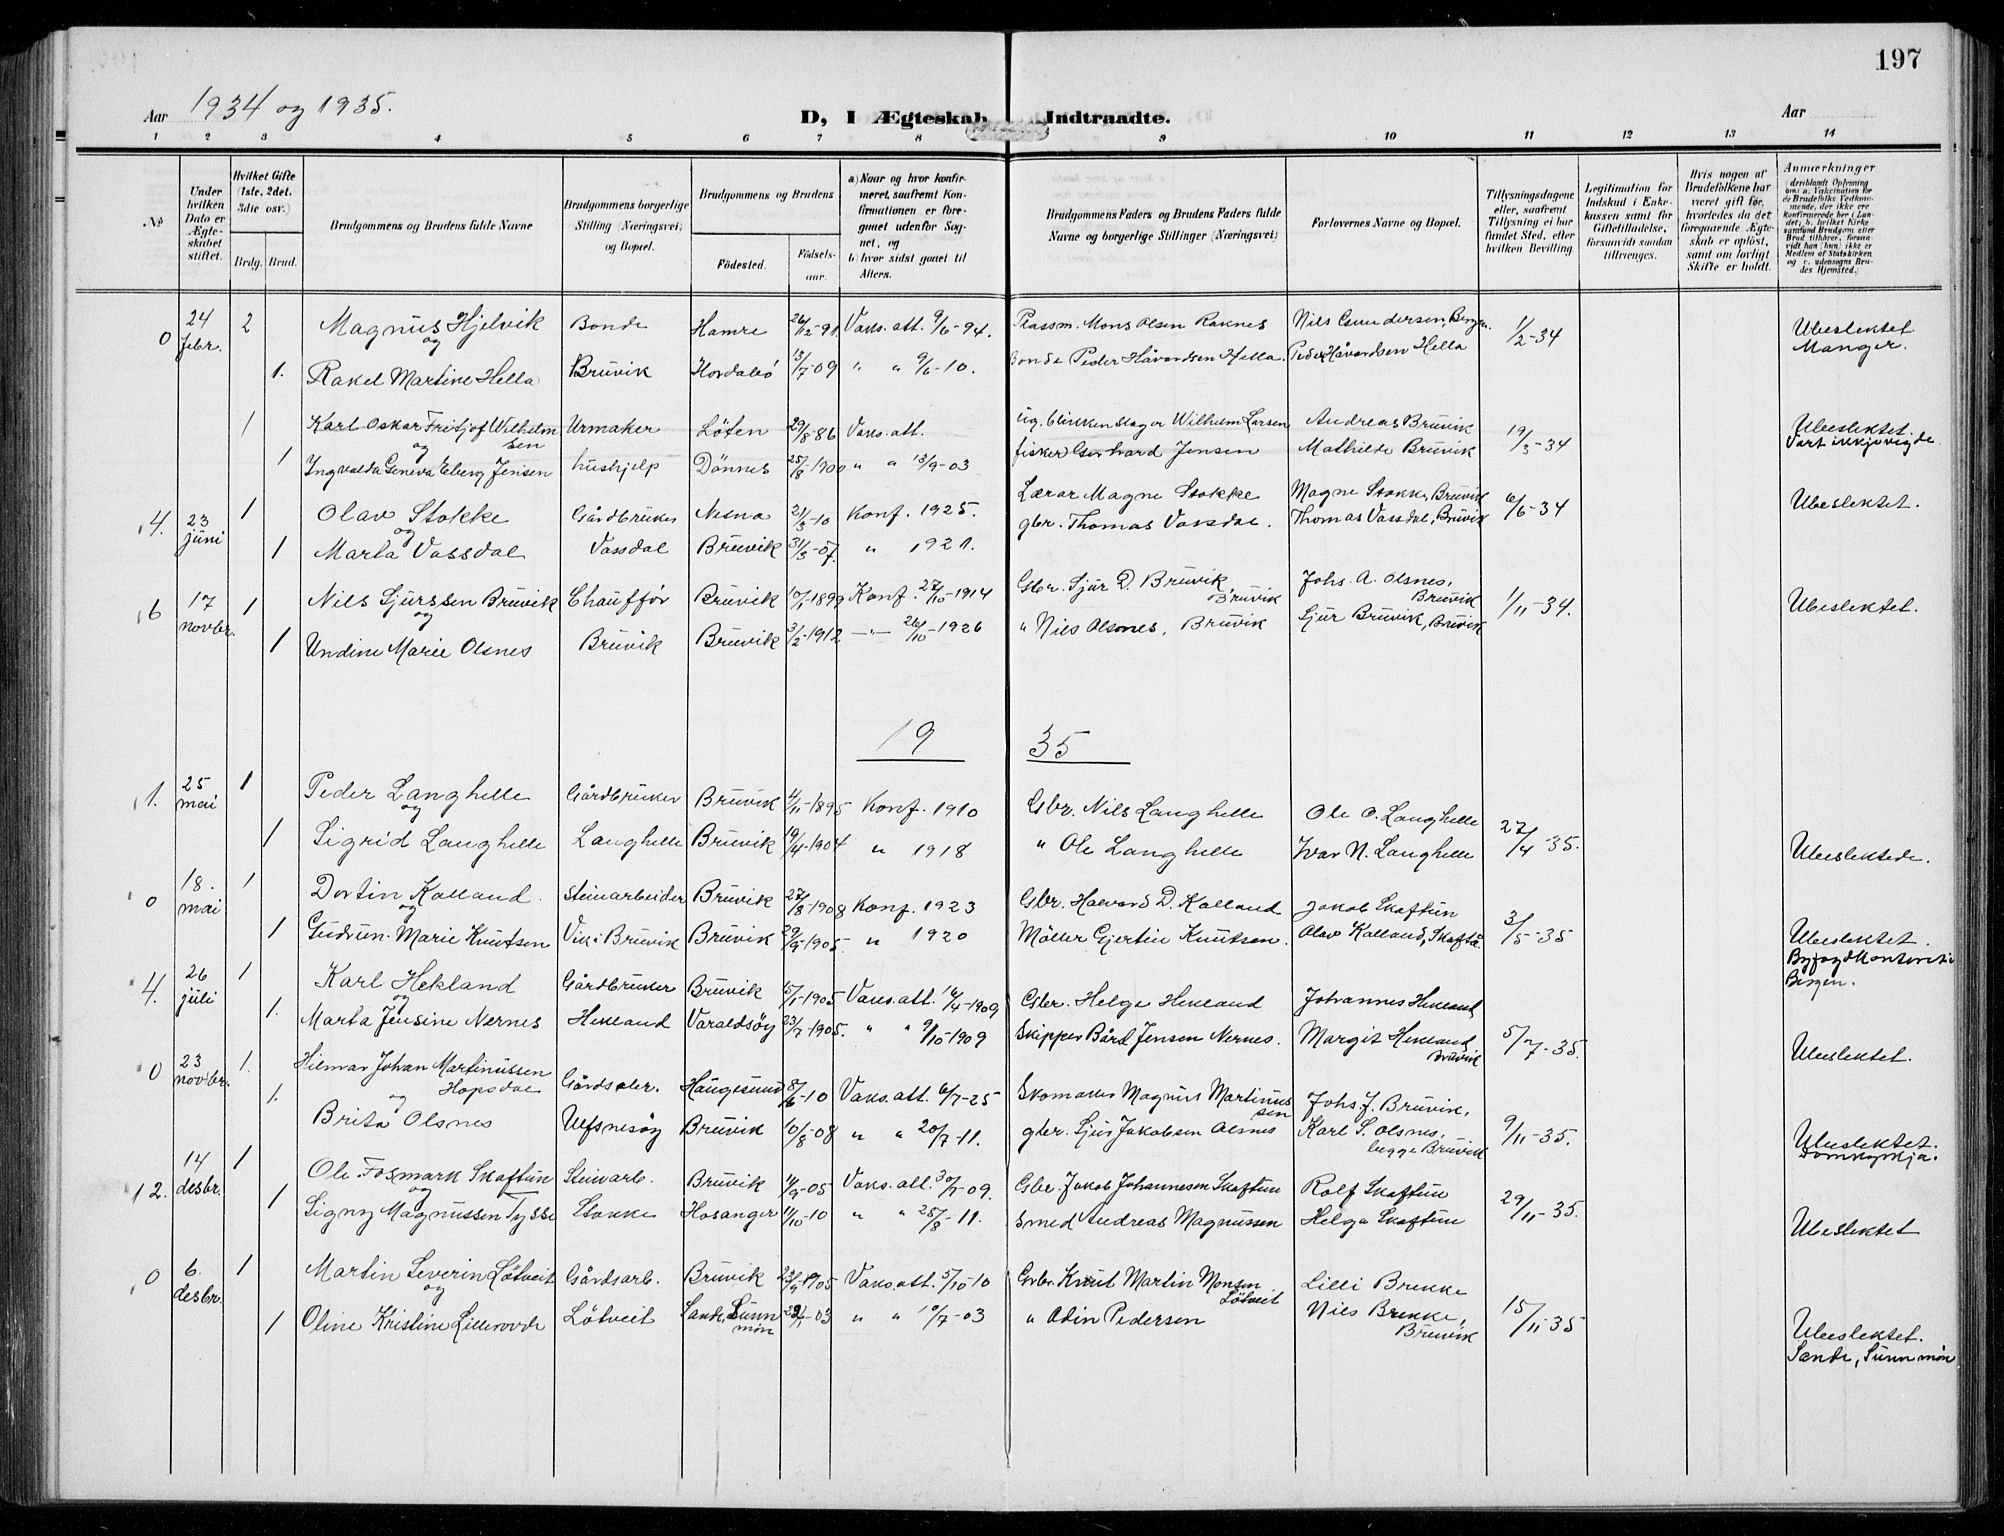 197
Aar 1934 og 1935.
D, 1 Ægteskab Indtraadte.
Aar
1 2 3 4 5 6 7 8 9 10 11 12 13 14
No
Under hvilken Dato er Ægteskabet stiftet.
Hvilket Gifte (1ste, 2det, 3die osv.)
Brdg. Brud.
Brudgommens og Brudens fulde Navne
Brudgommens borgerlige Stilling (Næringsvei) og Bopæl.
Brudgommens og Brudens
Fødested. Fødselsaar.
a) Naar og hvor konfirmeret, saafremt Konfirmationen er foregaaet udenfor Sognet, og
b) hvor sidst gaaet til Alters.
Brudgommens Faders og Brudens Faders fulde Navne og borgerlige Stillinger (Næringsvei)
Forlovernes Navne og Bopæl.
Tillysningsdagene eller, saafremt Tillysning ei har fundet Sted, efter hvilken Bevilling
Legitimation for Indskud i Enkekassen samt for Giftetilladelse, forsaavidt saadan tiltrænges.
Hvis nogen af Brudefolkene har været gift før, hvorledes da det foregaaende Ægteskab er opløst, samt om lovligt Skifte er holdt.
Anmerkninger
(deriblandt Oplysning om: a. Vakcination for de Brudefolks Vedkommende, der ikke ere Konfirmerede her i Landet; b. hvilket Kirkesamfund Brudgom eller Brud tilhører, forsaavidt han (hun) ikke er Medlem af Statskirken og c. udensogns Brudes Hjemsted.)
0 24 febr. 2 Magnus Hjelvik Bonde Hamre 26/12-91 Vaks. att. 9/6-94. Plassm. Mons Olsen Raknes Nils Gundersen, Bergen. 1/2-34 Ubeslektet
og
1. Rakel Martine Hella Bruvik Hordabø 13/7-09 " " 9/6-10. Bonde Peder Håvardsen Hella. Peder Håvardsen Hella Manger.
1 Karl Oskar Fritjof Wilhelmsen Urmaker Løten 29/8-86 Vaks. att. ug. blikkenslager Wilhelm Larsen Andreas Bruvik 19/3-34 Ubeslektet.
og
1 Ingvalda Geneva Elberg Jensen hushjelp Dønnes 25/8-1900 " " 13/9-03 fisker Gerhard Jensen Mathilde Bruvik Vart ikkje vigde.
4. 23 juni 1 Olav Stokke Gårdbruker Nesna 21/3-10 Konf. 1925. Lærar Magne Stokke Magne Stokke, Bruvik 6/6-34 Ubeslektet.
og
1 Marta Vassdal Vassdal Bruvik 31/3-07. " 1921. gbr. Thomas Vassdal. Thomas Vassdal, Bruvik
6 17 novbr. 1 Nils Sjurssen Bruvik Chauffør Bruvik 10/1-1899 Konf. 27/10-1914 Gbr. Sjur D. Bruvik, Bruvik Johs. A. Olsnes, Bruvik 1/11-34. Ubeslektet.
og
1 Undine Marie Olsnes Bruvik Bruvik 3/2-1912 —"— 26/10-1926 " Nils Olsnes, Bruvik Sjur Bruvik, Bruvik
19 35
1. 25 mai 1 Peder Langhelle Gårdbruker Bruvik 4/11-1895 Konf. 1910 Gbr. Nils Langhelle Ole O. Langhelle
og
1 Sigrid Langhelle Langhelle Bruvik 19/4-1904 " 1918 " Ole Langhelle Ivar N. Langhelle 27/4-35. Ubeslektede.
0 18. mai 1 Dortin Kalland. Steinarbeider Bruvik 27/8-1908 Konf. 1923 Gbr. Halvard D. Kalland Jakob Skaftun
og
1 Gudrun Marie Knutsen Vik i Bruvik Bruvik 29/9-1905. " 1920 Møller Gjertin Knutsen. Olav Kalland, Skaftå 3/5-35 Ubeslektet.
Byfogdkontoret i Bergen.
4. 26 juli 1 Karl Hekland Gårdbruker Bruvik 5/1-1905 Vaks. att. 16/4-1909 Gbr. Helge Hekland Johannes Hekland
og
1. Marta Jensine Nernes Hekland Varaldsøy 23/7-1905. " " 9/10-1909 Skipper Bård Jensen Nernes. Margit Hekland Bruvik 5/7-35. Ubeslektet.
0 23 novbr. 1. Hilmar Johan Martinussen Hopsdal Gårdsarb. Haugesund 8/6-10 Vaks. att. 6/7-25 Skomaker Magnus Martinussen Johs. J. Bruvik,
og
1. Brita Olsnes Ulfsnesøy Bruvik 10/8-08 " " 20/7-11. gbr. Sjur Jakobsen Olsnes Karl S. Olsnes, begge Bruvik 9/11-35. Ubeslektet.
Domkyrkja.
12. 14 desbr. 1 Ole Fosmark Skaftun Steinarb. Bruvik 14/9-05 Vaks. att. 30/7-09. Gbr. Jakob Johannesen Skaftun Rolf Skaftun
og
1 Signy Magnussen Tysse Stokke Hosanger 11/10-10 " " 25/8-11. Smed Andreas Magnussen Helga Skaftun 29/11-35. Ubeslektet
0 6. desbr. 1 Martin Severin Løtveit Gårdsarb. Bruvik 23/9-1905 Vaks. att. 5/10-10 Gbr. Knut Martin Monsen Løtveit Lilli Brekke
og
1 Oline Kristine Lillerovde Løtveit Sande, Sunnmør 22/1-03 " " 10/7-03 " Odin Pedersen Nils Brekke, Bruvik 15/11-35 Ubeslektet.
Sande, Sunnmør